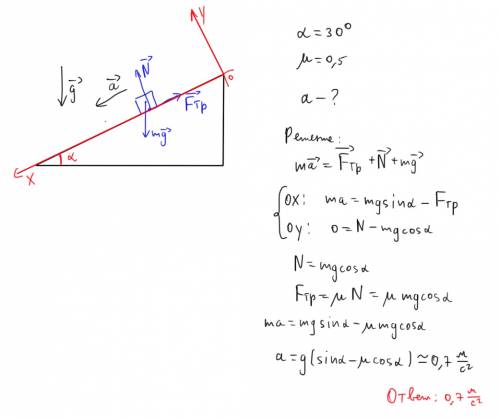 Y
O
N⃗
a⃗
g⃗
F⃗тр
mg⃗
α
X
α = 30°
μ = 0,5
a – ?
Решение:
ma⃗ = F⃗тр + N⃗ + mg⃗
OX: ma = mg sinα – Fтр
OY: 0 = N – mg cosα
N = mg cosα
Fтр = μ N = μ mg cosα
ma = mg sinα – μ mg cosα
a = g(sinα – μ cosα) ≃ 0,7 м/с²
Ответ: 0,7 м/с²